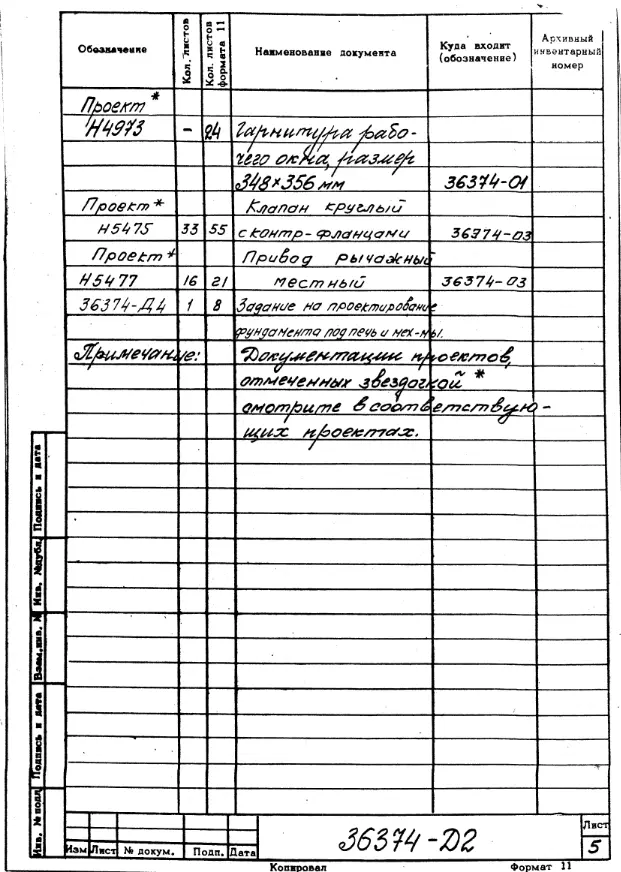 Обозначение Кол. листов Кол. листов формата 11 Наименование документа Куда входит (обозначение) Архивный инвентарный номер
Проект*
Н4973 - 24 Гарнитура рабо-
чего окна, размер
348×356 мм 36374-01
Проект* Клапан круглый
Н5475 33 55 с контр-фланцами 36374-03
Проект* Привод рычажный
Н5477 16 21 местный 36374-03
36374-Д4 1 8 Задание на проектирование
фундамента под печь и мех-мы.
Примечание: Документации проектов,
отмеченных звездочкой *
смотрите в соответствую-
щих проектах.
Подпись и дата
Инв. №дубл.
Взам.инв. №
Подпись и дата
Инв. № подл.
36374-Д2
Лист
5
Изм Лист № докум. Подп. Дата
Копировал Формат 11